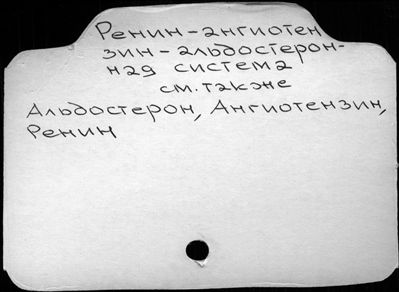 Ренин-ангиотен
зин-альдостерон-
ная система
см. также
Альдостерон, Ангиотензин,
Ренин